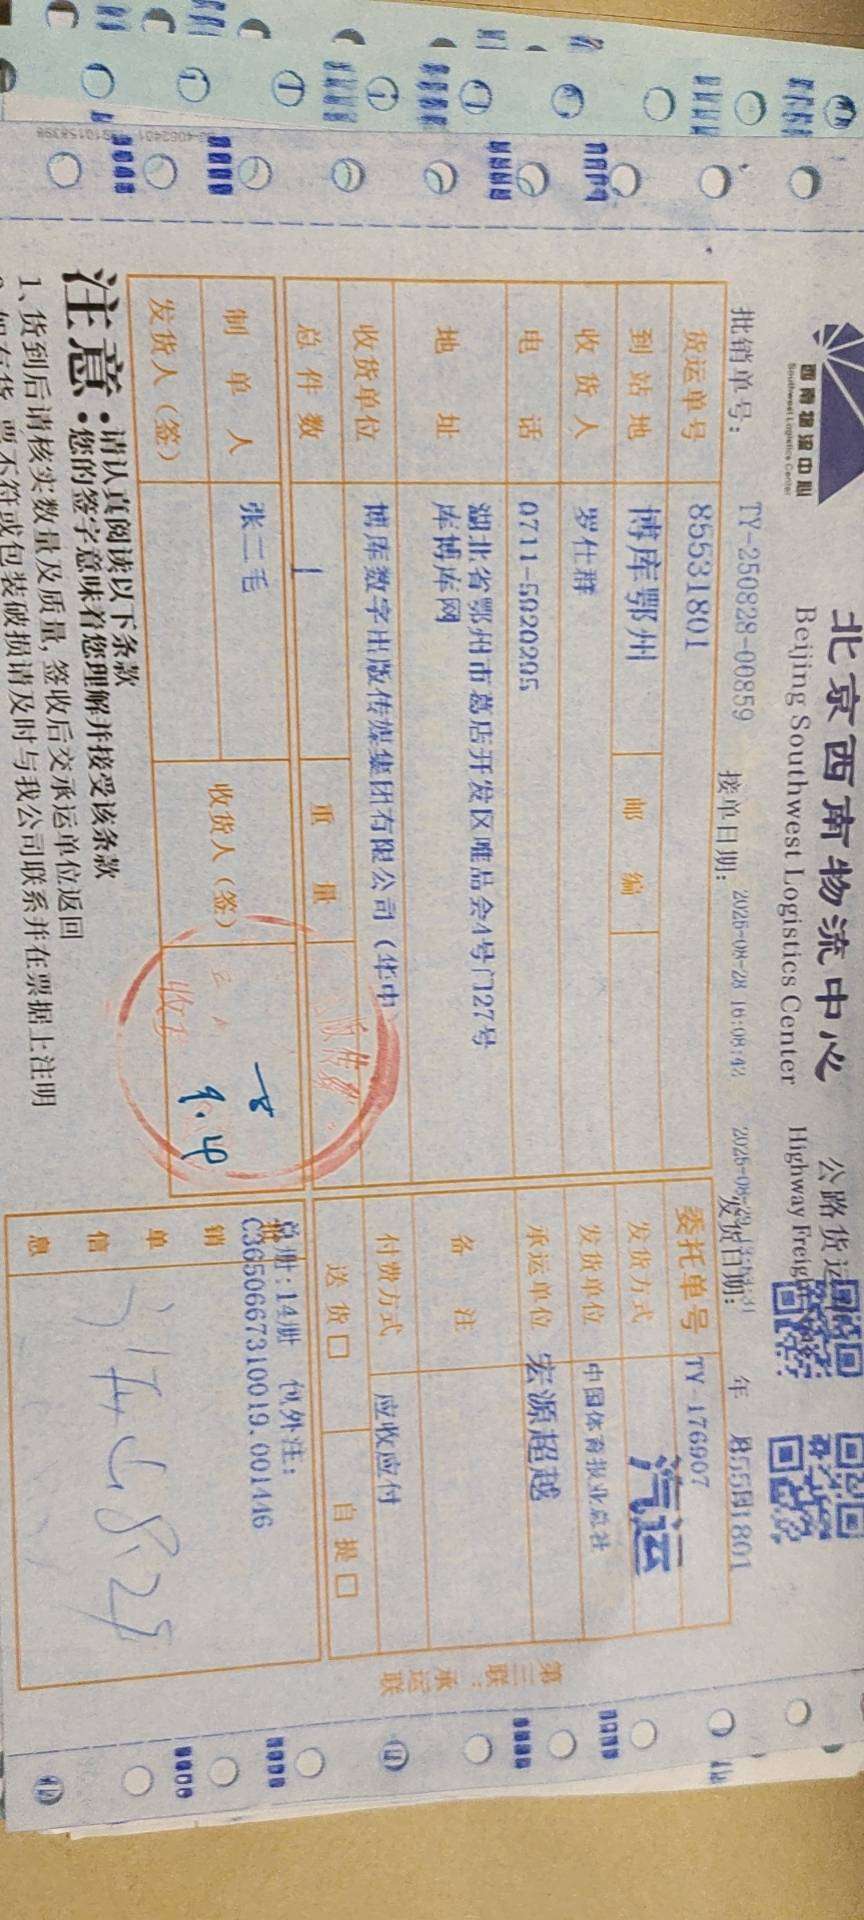 西南物流中心
Southwest Logistics Center
北京西南物流中心 公路货运
Beijing Southwest Logistics Center Highway Freight
批销单号: TY-250828-00859 接单日期: 2025-08-28 16:08:42 发货日期: 年
货运单号 85531801
委托单号 TY-176907
到站地 博库鄂州 邮编
发货方式 汽运
收货人 罗仕群
发货单位 中国体育报业总社
电话 0711-5020295
承运单位 宏源超越
地址 湖北省鄂州市葛店开发区唯品会4号门27号
库博库网
备注
收货单位 博库数字出版传媒集团有限公司(华中)
付费方式 应收应付
总件数 1 重量
送货□ 自提□
制单人 张二毛
收货人(签)
9.4
发货人(签)
批销单信息
总册:14册 包外注:
C3650667310019.001446
8.28
注意:请认真阅读以下条款
您的签字意味着您理解并接受该条款
1、货到后请核实数量及质量,签收后交承运单位返回
票不符或包装破损请及时与我公司联系并在票据上注明
第三联:承运联